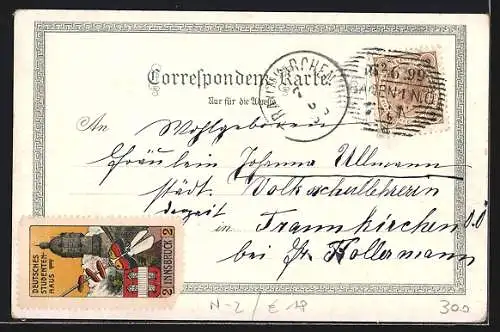 Correspondenz-Karte.
Nur für die Adresse
An Wohlgeboren
Fräulein Johanna Ullmann
städt. Volksschullehrerin
derzeit
in Traunkirchen O.Ö.
bei Fr. Kollermann
TRAUNKIRCHEN
6 99
DEUTSCHES
STUDENTEN-
HAUS
INNSBRUCK
2
2
N-2 / € 18
300